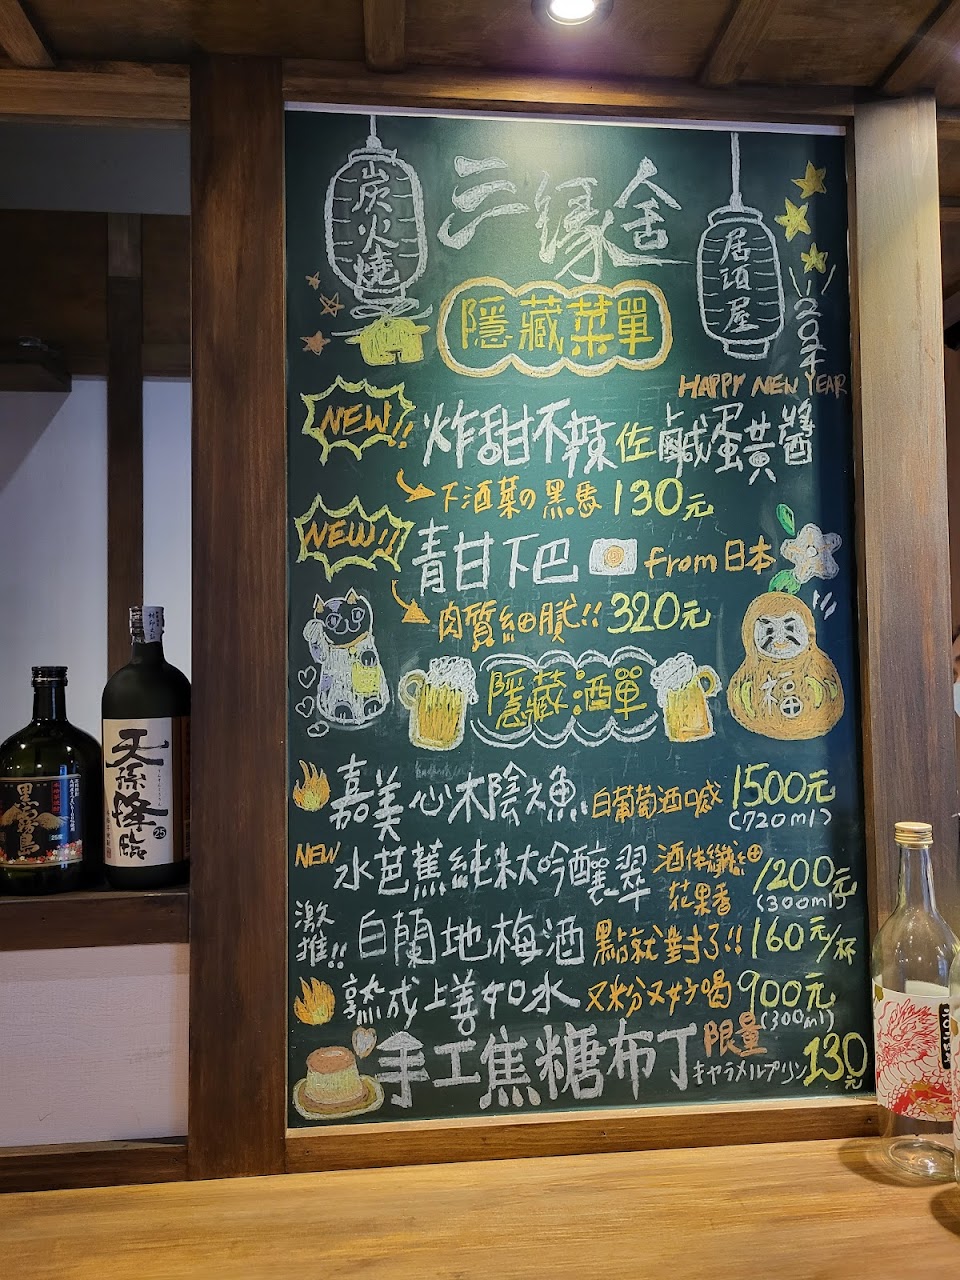 炭火燒
三緣舍
居酒屋
隱藏菜單
2024
HAPPY NEW YEAR
NEW!!
炸甜不辣佐鹹蛋黃醬
下酒菜の黑馬 130元
NEW!!
青甘下巴 from日本
肉質細膩!! 320元
福
隱藏酒單
嘉美心木陰之魚 白葡萄酒感 1500元
(720ml)
NEW 水芭蕉純米大吟釀翠 酒体纖細 花果香 1200元
(300ml)
激推!! 白蘭地梅酒 點就對了!! 160元/杯
熟成上善如水 又粉又好喝 900元
(300ml)
手工焦糖布丁 限量
キャラメルプリン 130元
黑霧島
天孫降臨
25